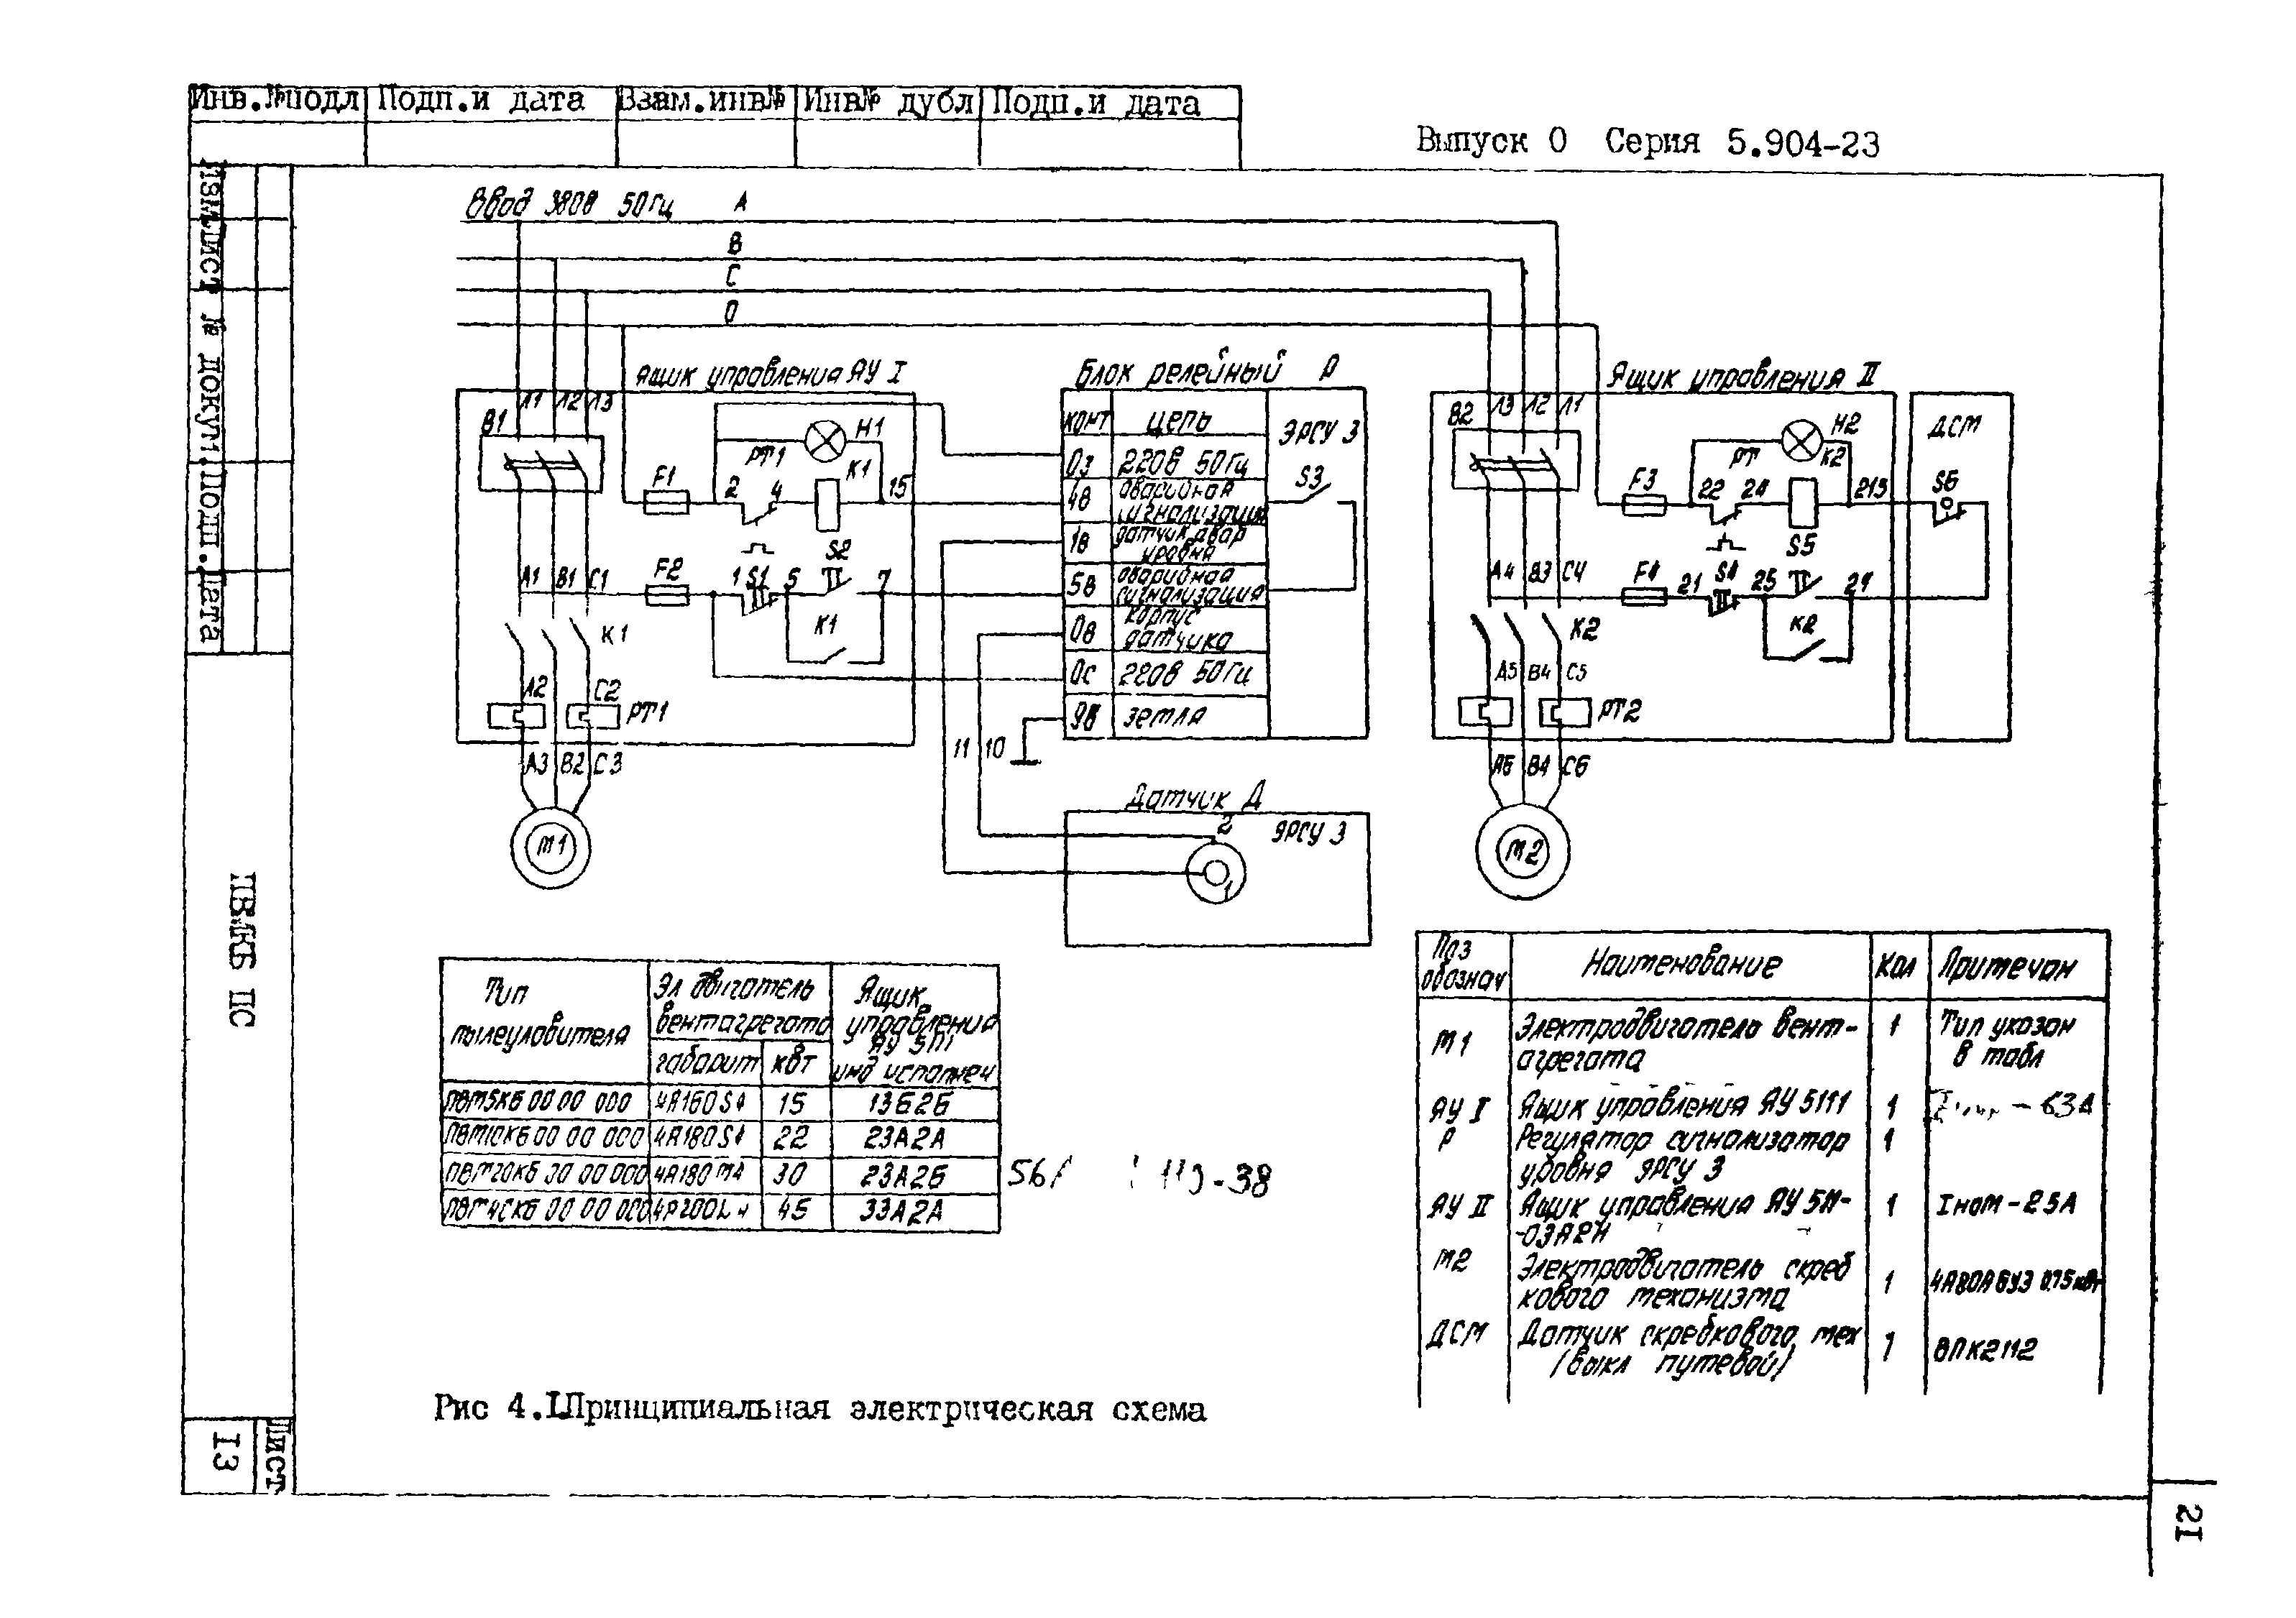 Инв.№подл Подп.и дата Взам.инв№ Инв№ дубл Подп.и дата
Выпуск 0 Серия 5.904-23
Изм Лист № докум Подп. Дата
Ввод 380В 50Гц А
В
С
О
Ящик управления ЯУ I
В1 Л1 Л2 Л3
F1 2 РТ1 4 К1 Н1 15
А1 В1 С1 F2 1 S1 5 S2 7
К1
К1
А2 С2 РТ1
А3 В2 С3
М1
Блок релейный Р
конт цепь ЭРСУ 3
03 220В 50Гц
4В аварийная сигнализация S3
1В датчик авар уровня
5В аварийная сигнализация
0В корпус датчика
0С 220В 50Гц
9В земля
11 10
Датчик Д
2 ЭРСУ 3
1
Ящик управления II
В2 Л3 Л2 Л1
F3 22 РТ 24 К2 Н2 213
А4 В3 С4 F4 21 S4 25 S5 27
К2
К2
А5 В4 С5 РТ2
А6 В4 С6
М2
ДСМ
S6
Тип пылеуловителя Эл двигатель вентагрегата Ящик управления ЯУ 5111 инд исполнен
габарит кВт
ПВМ5КБ 00 00 000 4А160S4 15 13Б2Б
ПВМ10КБ 00 00 000 4А180S4 22 23А2А
ПВМ20КБ 00 00 000 4А180М4 30 23А2Б
ПВМ40КБ 00 00 000 4А200L4 45 33А2А
Поз обознач Наименование Кол Примечан
М1 Электродвигатель вент- 1 Тип указан
агрегата в табл
ЯУ I Ящик управления ЯУ 5111 1 - 63А
Р Регулятор сигнализатор 1
уровня ЭРСУ 3
ЯУ II Ящик управления ЯУ 511- 1 Iном-25А
-03А2Н
М2 Электродвигатель скреб
кового механизма 1 4А80А6У3 0.75кВт
ДСМ Датчик скребкового мех 1 ВПК2112
(выкл путевой)
Рис 4.I.Принципиальная электрическая схема
ПВМКБ ПС
Лист
I3
2I